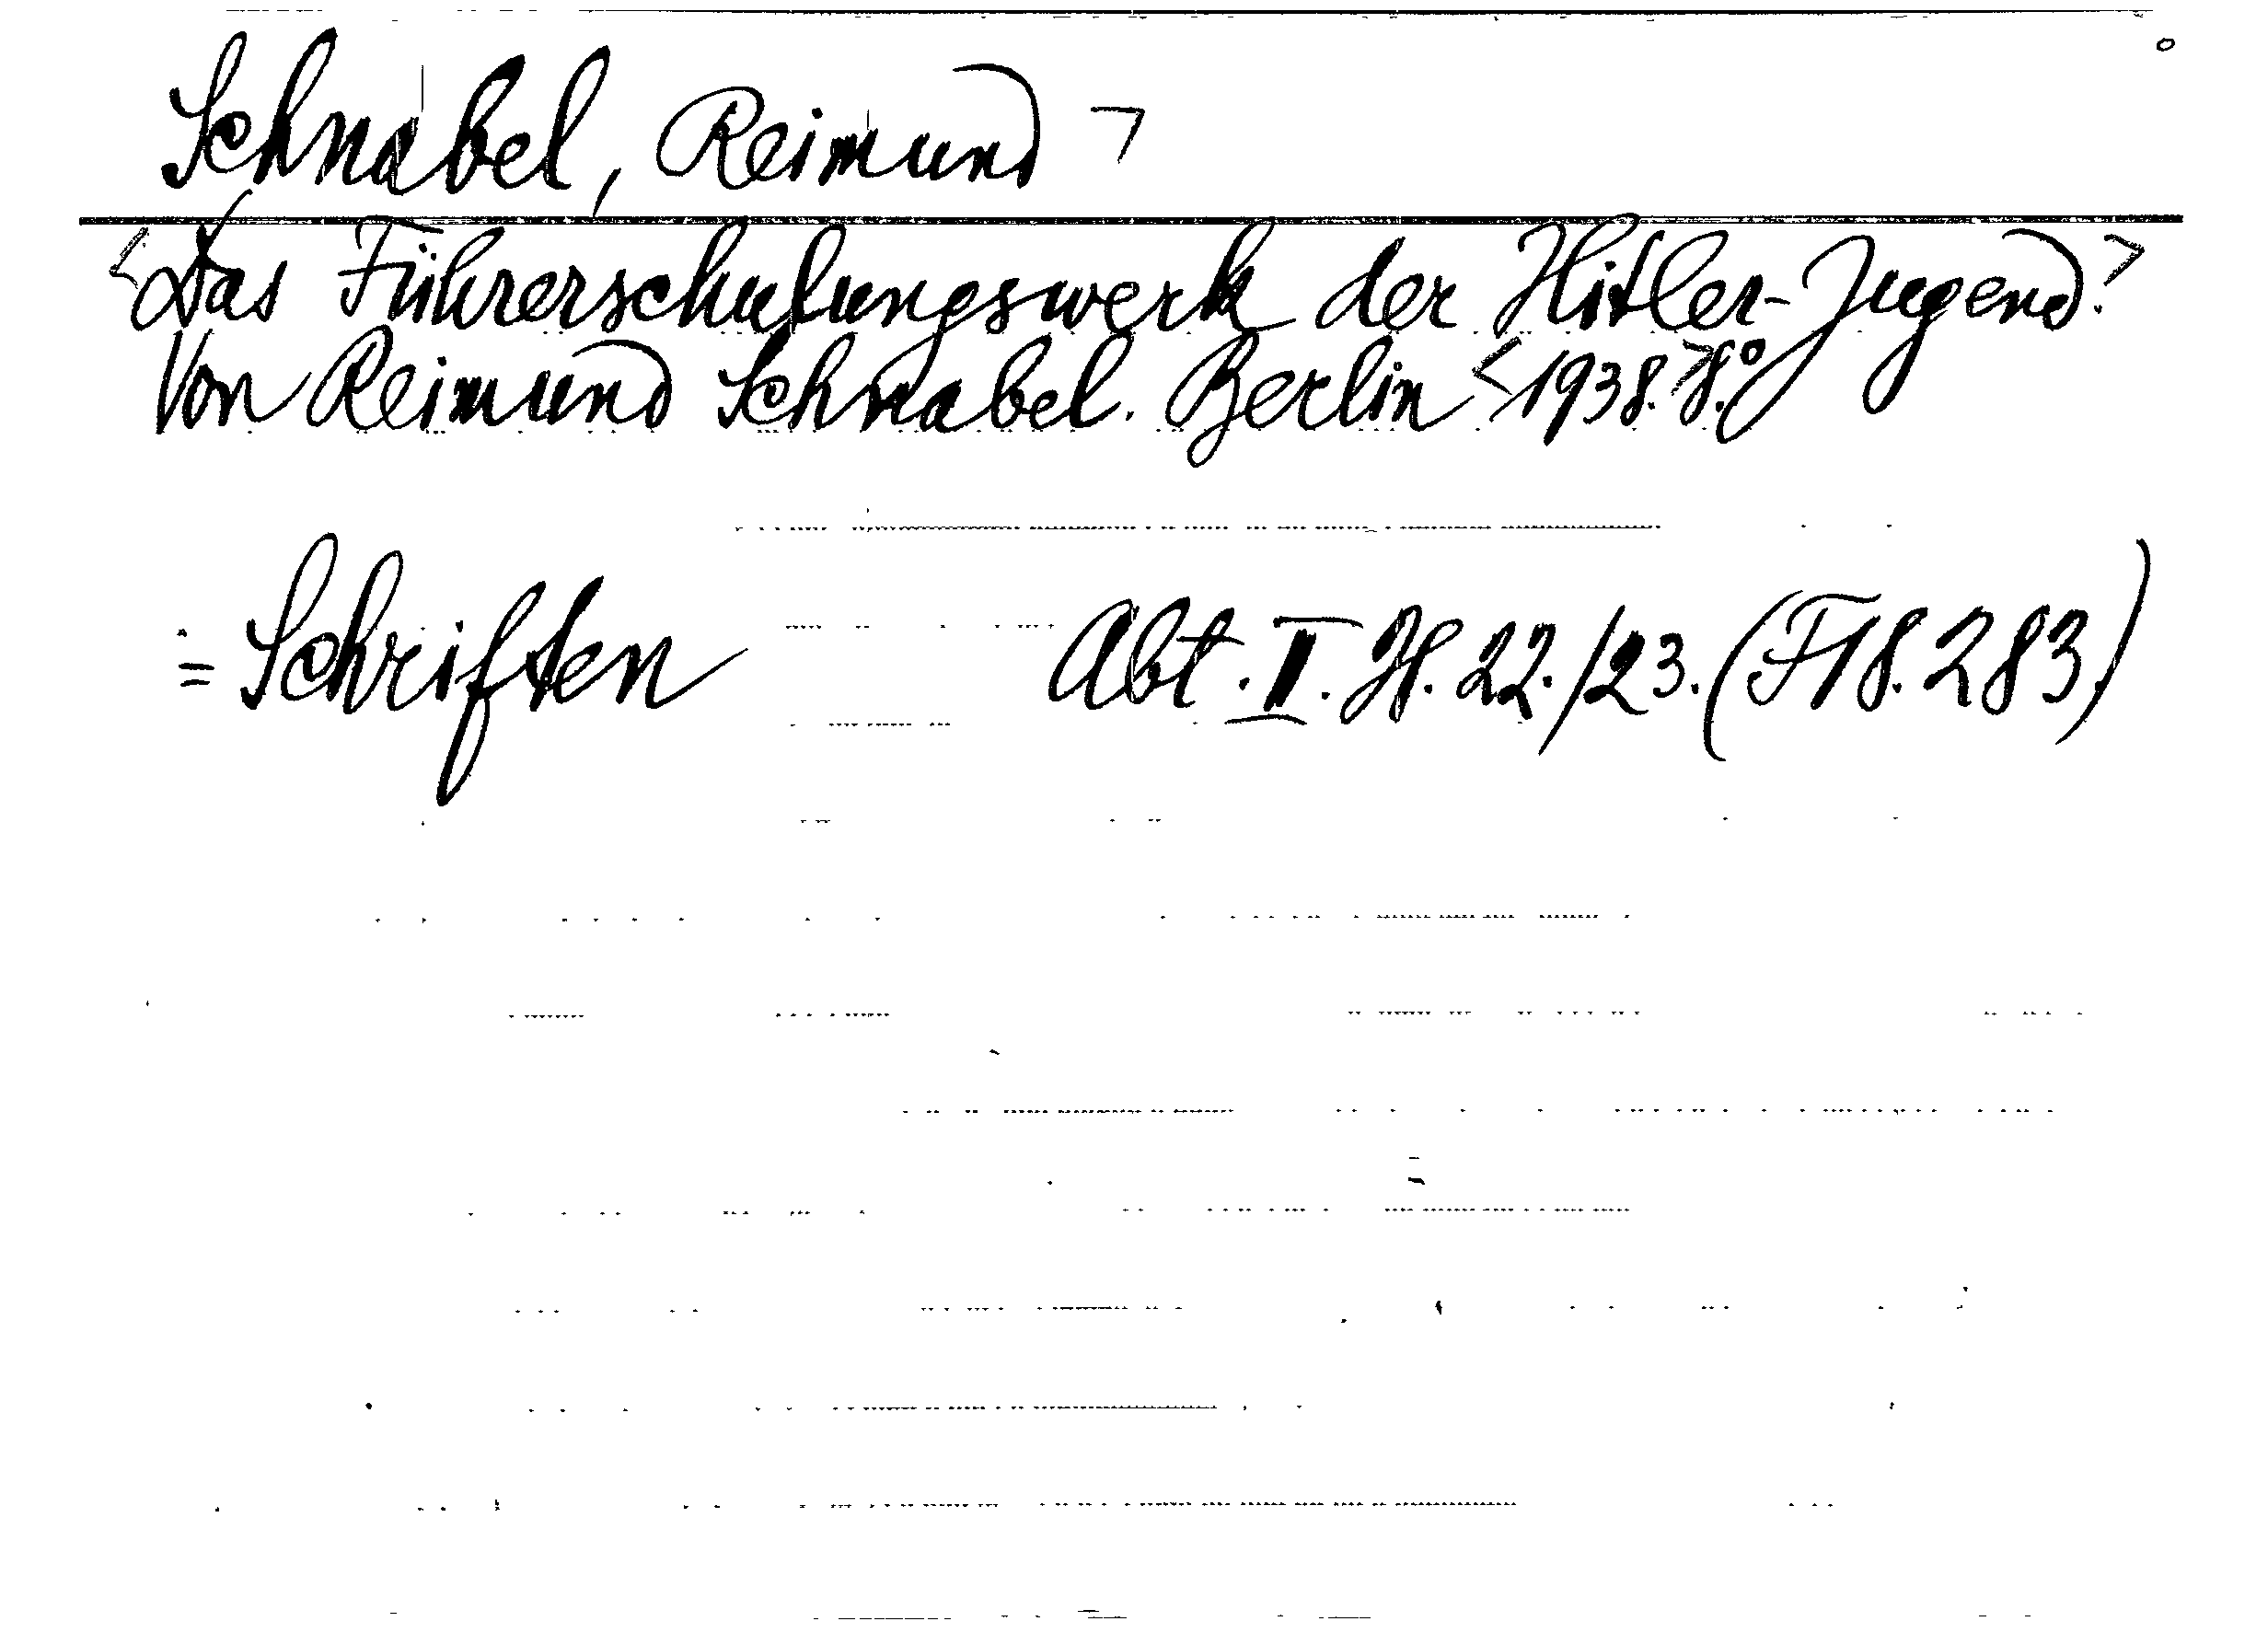 Schnabel, Reimund >
<Das Führerschulungswerk der Hitler-Jugend.>
Von Reimund Schnabel. Berlin <1938.> 8.°
= Schriften Abt. II. H. 22./23. (F18.283)